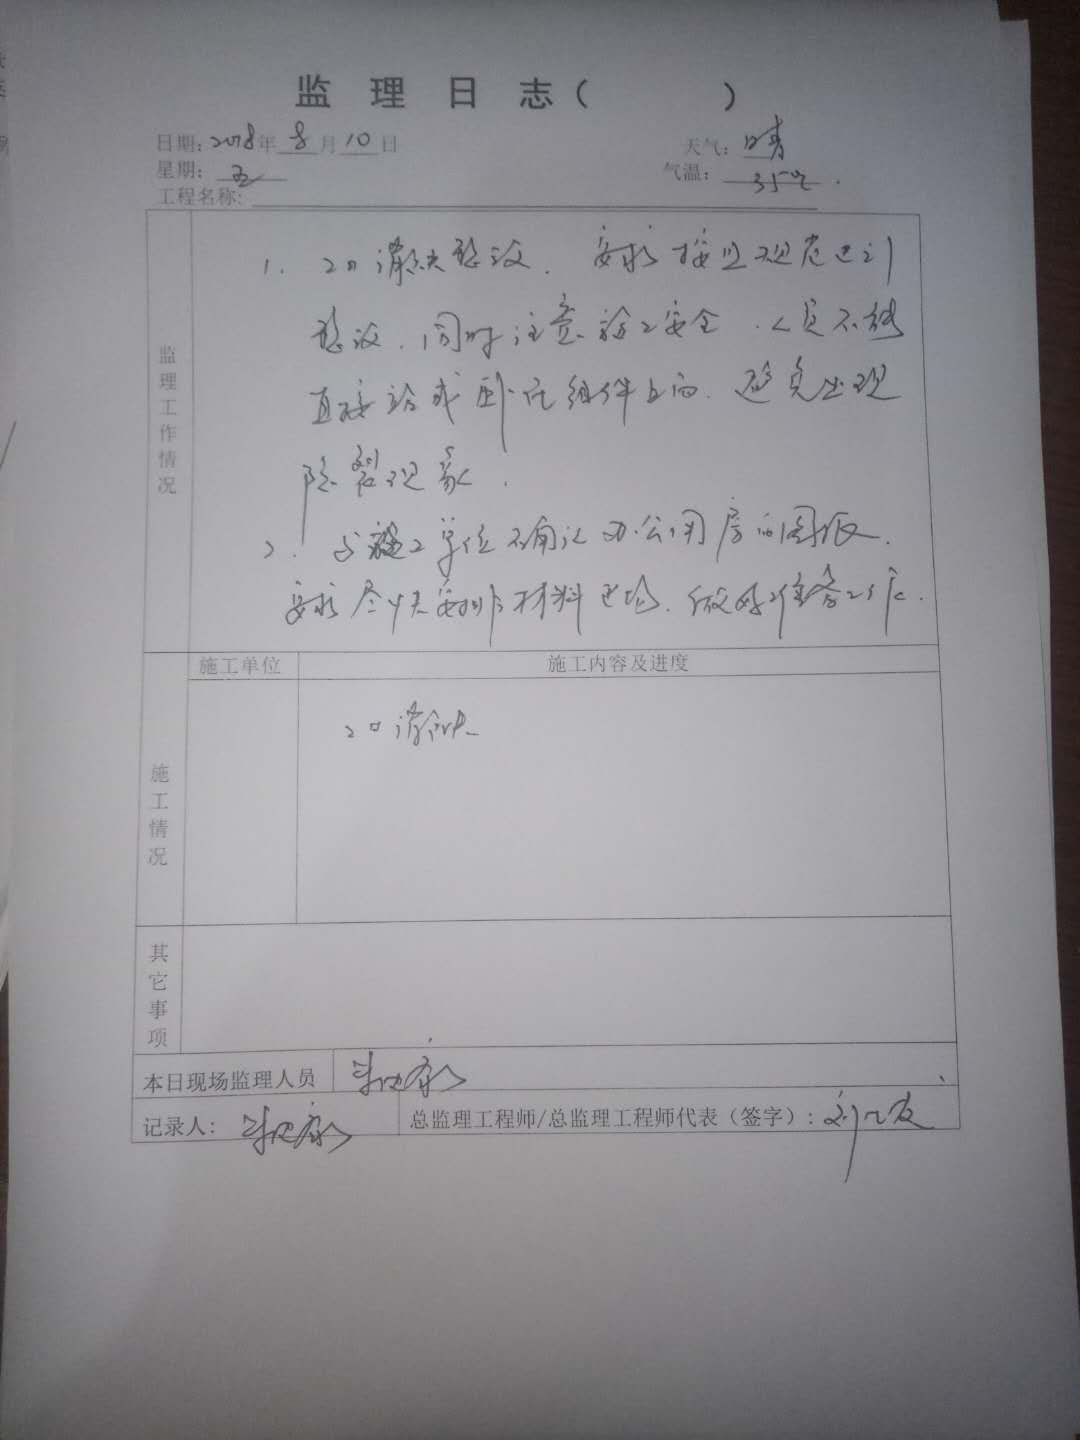 监 理 日 志（ ）
日期：2018年 8 月 10 日 天气：晴
星期：五 气温：35℃.
工程名称：
监理工作情况
1. 消缺整改. 要求按照规范进行
整改. 同时注意施工安全. 人员不能
直接站或卧在组件上面. 避免出现
隐裂现象.
2. 与施工单位 确认办公用房的图纸.
要求尽快安排材料进场. 做好准备工作.
施工单位 施工内容及进度
施工情况
消缺
其它事项
本日现场监理人员
记录人： 总监理工程师/总监理工程师代表（签字）：